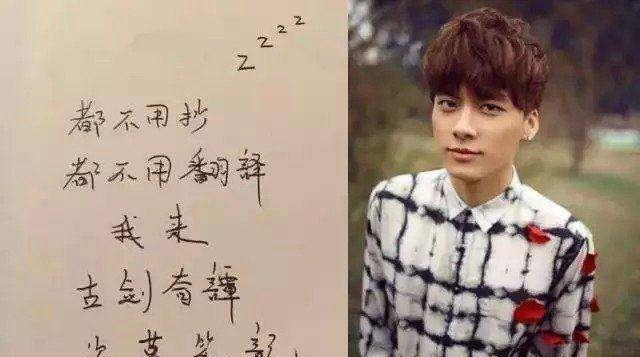 zzzz
都不用抄
都不用翻譯
我来
古剑奇譚